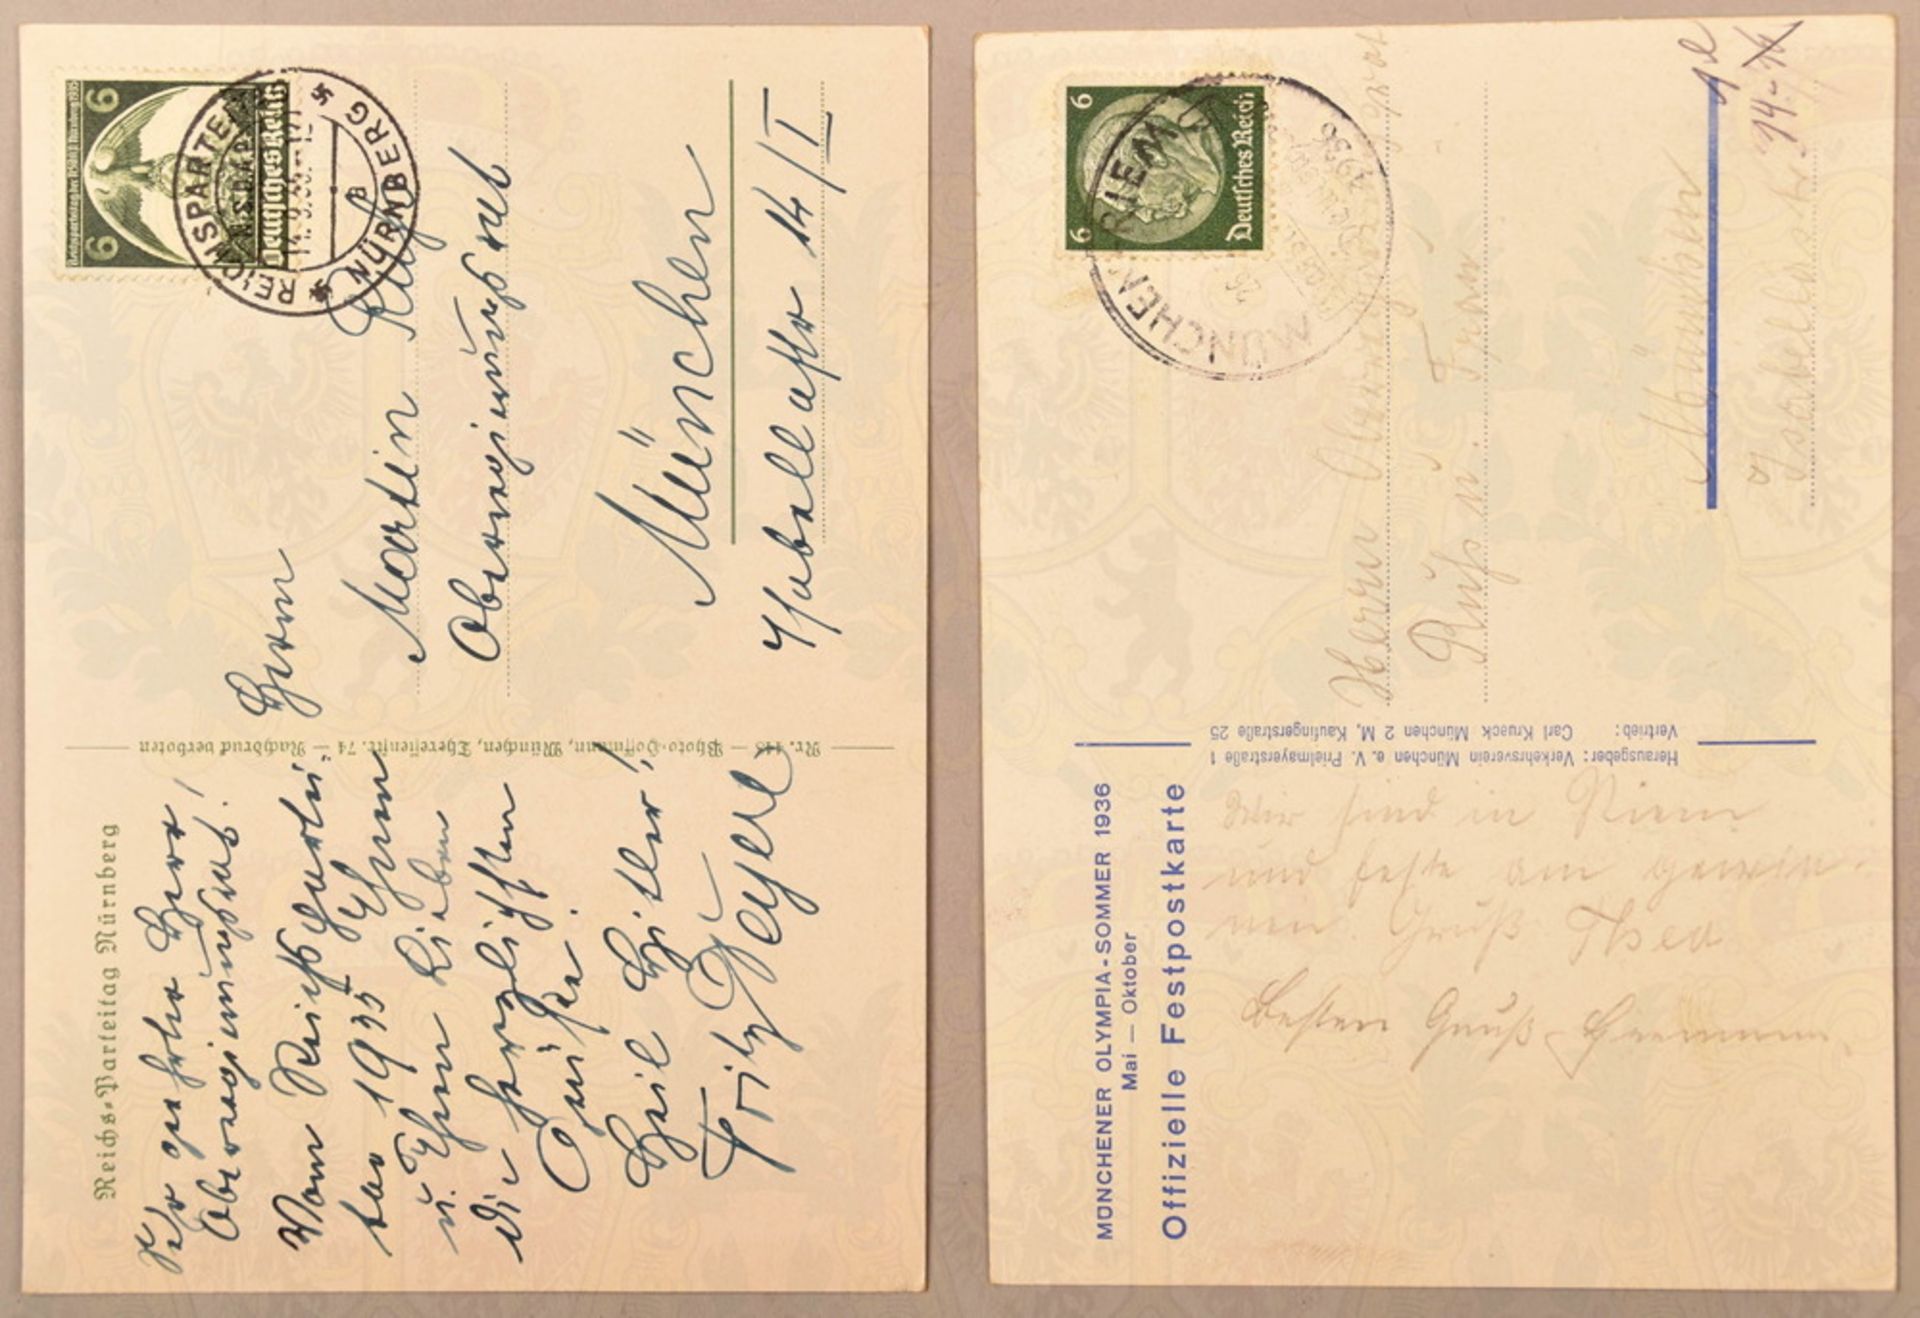 Reichs-Parteitag Nürnberg
Sehr geehrter Herr
Oberregierungsrat!
Vom Reichsparteitag 1935 Ihnen
u. Ihren Lieben
die herzlichsten
Grüße.
Heil Hitler!
Fritz
Nr. 445 — Photo-Hoffmann, München, Theresienstr. 74 — Nachdruck verboten
Reichsparteitag der NSDAP Nürnberg 1935
6 6
Deutsches Reich
REICHSPARTEITAG
N.S.D.A.P.
NÜRNBERG
Herrn
Martin
Oberregierungsrat
München
Isabellastr 14/I
MÜNCHENER OLYMPIA-SOMMER 1936
Mai — Oktober
Offizielle Festpostkarte
Wir sind in Riem
und feste am gewin-
nen Gruß Thea
Besten Gruß Hermann
Herausgeber: Verkehrsverein München e. V. Prielmayerstraße 1
Vertrieb: Carl Krueck München 2 M, Kaufingerstraße 25
6 6
Deutsches Reich
MÜNCHEN-RIEM
1936
Herrn
u. Frau
München
Isabellastr.
14